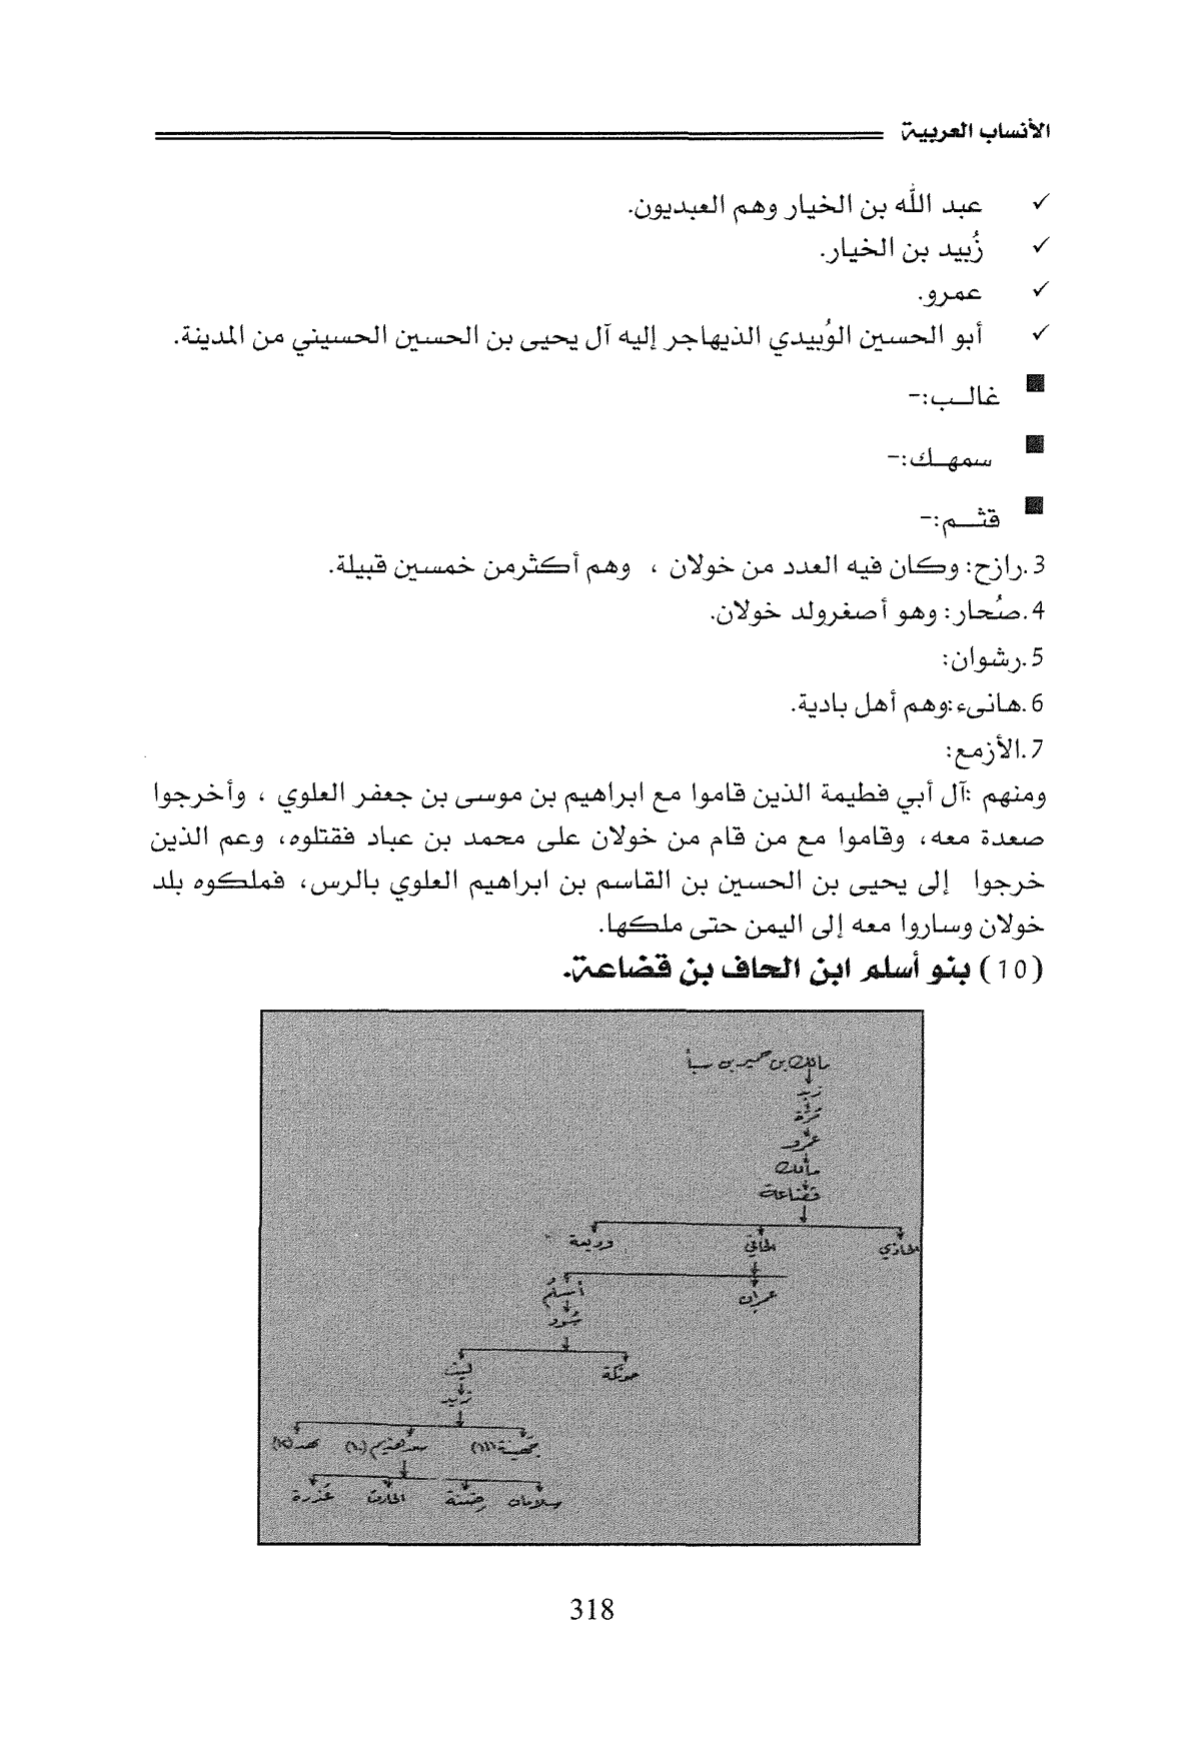 الأنساب العربية
✓ عبد الله بن الخيار وهم العبديون.
✓ زُبيد بن الخيار.
✓ عمرو.
✓ أبو الحسين الوُبيدي الذيهاجر إليه آل يحيى بن الحسين الحسيني من المدينة.
■ غالـب:-
■ سمهـك:-
■ قثـم:-
3.رازح: وكان فيه العدد من خولان ، وهم أكثرمن خمسين قبيلة.
4.صُحار: وهو أصغرولد خولان.
5.رشوان:
6.هانىء:وهم أهل بادية.
7.الأزمع:
ومنهم :آل أبي فطيمة الذين قاموا مع ابراهيم بن موسى بن جعفر العلوي ، وأخرجوا
صعدة معه، وقاموا مع من قام من خولان على محمد بن عباد فقتلوه، وعم الذين
خرجوا إلى يحيى بن الحسين بن القاسم بن ابراهيم العلوي بالرس، فملكوه بلد
خولان وساروا معه إلى اليمن حتى ملكها.
(10) بنو أسلم ابن الحاف بن قضاعة.
مالك بن حمير بن سبأ
زيد
مُرّة
عمرو
مالك
قضاعة
الحاذي الحافي وديعة
عمران أسلُم
سُود
حوتكة ليث
زيد
جهينة (١١) سعد هذيم (١٠) نهد (١٥)
سلامان ضِنّة الحارث عُذرة
318